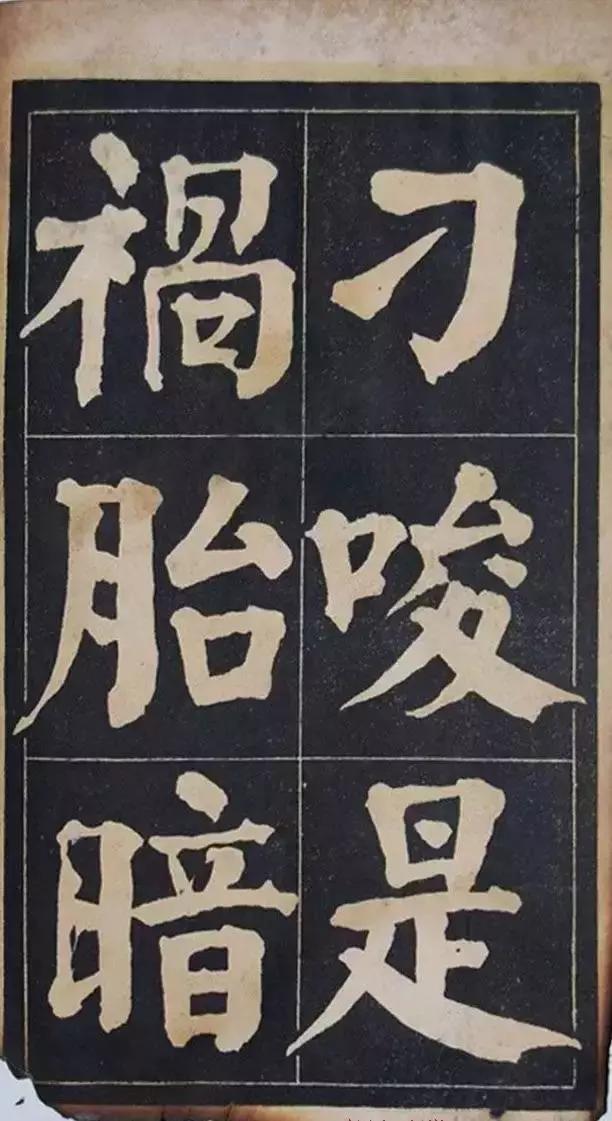 刁唆是
禍胎暗